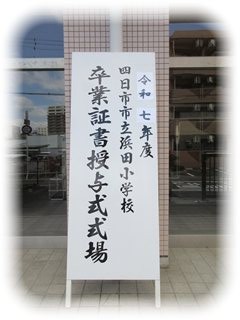 令和七年度
四日市市立浜田小学校
卒業証書授与式式場